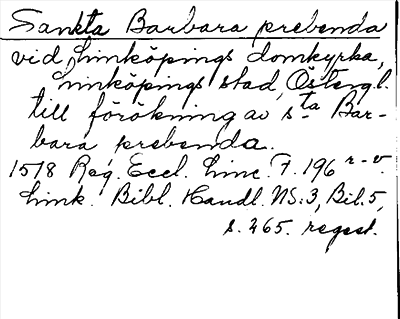 Sankta Barbara prebenda
vid Linköpings domkyrka,
Linköpings stad, Östergl.
till förökning av s:ta Bar-
bara prebenda.
1578 Reg. Eccl. Linc. F. 196 r-v.
Link. Bibl. Handl. NS:3, Bil. 5,
s. 265. regest.